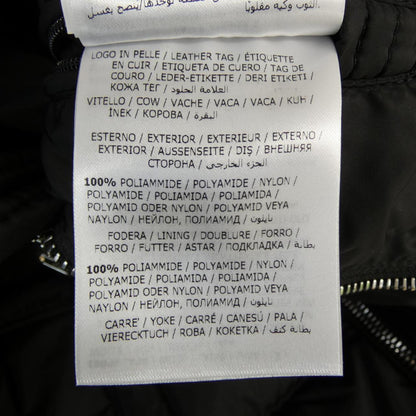 الثوب وكيه مقلوبًا
LOGO IN PELLE / LEATHER TAG / ÉTIQUETTE
EN CUIR / ETIQUETA DE CUERO / TAG DE
COURO / LEDER-ETIKETTE / DERI ETIKETI /
КОЖА ТЕГ / العلامة الجلود
VITELLO / COW / VACHE / VACA / VACA / KUH /
İNEK / КОРОВА / البقرة
ESTERNO / EXTERIOR / EXTERIEUR / EXTERNO /
EXTERIOR / AUSSENSEITE / DIŞ / ВНЕШНЯЯ
СТОРОНА / الجزء الخارجي
100% POLIAMMIDE / POLYAMIDE / NYLON /
POLYAMIDE / POLIAMIDA / POLIAMIDA /
POLYAMID ODER NYLON / POLYAMID VEYA
NAYLON / НЕЙЛОН, ПОЛИАМИД / نايلون
FODERA / LINING / DOUBLURE / FORRO /
FORRO / FUTTER / ASTAR / ПОДКЛАДКА / بطانة
100% POLIAMMIDE / POLYAMIDE / NYLON /
POLYAMIDE / POLIAMIDA / POLIAMIDA /
POLYAMID ODER NYLON / POLYAMID VEYA
NAYLON / НЕЙЛОН, ПОЛИАМИД / نايلون
CARRE' / YOKE / CARRÉ / CANESÚ / PALA /
VIERECKTUCH / ROBA / КОКЕТКА / بطانة كتف